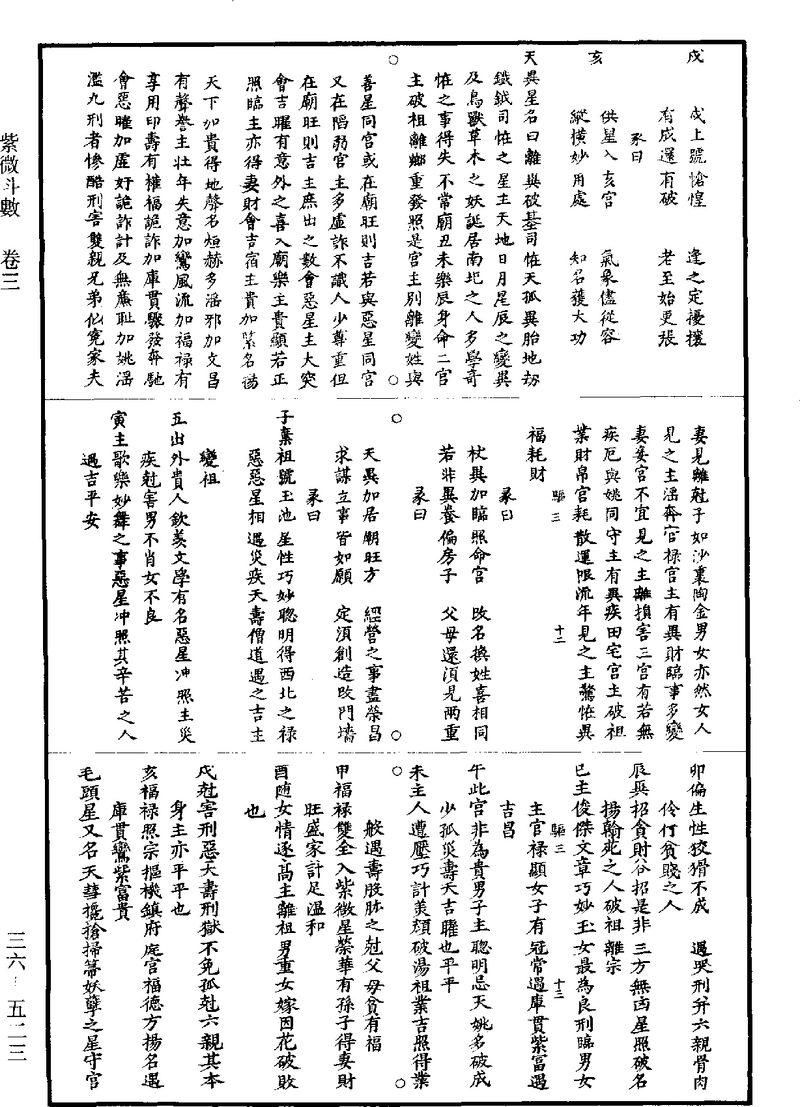 紫微斗數　卷三
戌　戌上號愴惶　逢之定擾攘
有成還有破　老至始更張
彖曰
亥　供星入亥宮　氣象儘從容
縱橫妙用處　知名獲大功
天異星名曰離與破碁司怪天孤異胎地刼
鐵鉞司怪之星主天地日月星辰之變異
及鳥獸草木之妖誕居南圯之人多學奇
怪之事得失不常廟丑未樂辰身命二宮
主破祖離鄉重發照是宮主別離變姓與
善星同宮或在廟旺則吉若與惡星同宮
又在陷弱宮主多虛詐不識人少尊重但
在廟旺則吉主庶出之數會惡星主大突
會吉曜有意外之喜入廟樂主貴顯若正
照臨主亦得妻財會吉宿主貴加紫名揚
天下加貴得地聲名烜赫多淫邪加文昌
有聲譽主壯年失意加鸞風流加福祿有
享用印壽有權福詭詐加庫貫驟發奔馳
會惡曜加虛好詭詐計及無廉耻加姚淫
濫九刑者慘酷刑害雙親兄弟似寃家夫
妻見離尅子如沙裏陶金男女亦然女人
見之主淫奔官祿宮主有異財臨事多變
妻妾宮不宜見之主離損害三宮有若無
疾厄與姚同守主有異疾田宅宮主破祖
業財帛宮耗散運限流年見之主驚怪異
驅三　十二
福耗財
彖曰
杖異加臨照命宮　改名換姓喜相同
若非異養偏房子　父母還須見兩重
彖曰
天異加居廟旺方　經營之事盡榮昌
求謀立事皆如願　定須創造改門墻
彖曰
子棄祖號玉池星性巧妙聰明得西北之祿
惡惡星相遇災疾夭壽僧道遇之吉主
變祖
丑出外貴人欽羨文學有名惡星冲照主災
疾尅害男不肖女不良
寅主歌樂妙舞之事惡星冲照其辛苦之人
遇吉平安
卯偏生性狡猾不成　遇哭刑并六親骨肉
伶仃貧賤之人
辰異招貪財谷招是非三方無凶星照破名
揚翰苑之人破祖離宗
巳主俊傑文章巧妙玉女最為良刑臨男女
驅三　十三
主官祿顯女子有冠常遇庫貫紫富遇
吉昌
午此宮非為貴男子主聰明忌天姚多破成
少孤災壽夭吉曜也平平
未主人遭壓巧計美顏破湯祖業吉照得業
般遇壽股肱之尅父母貧有福
申福祿雙全入紫微星榮華有孫子得妻財
旺盛家計足溫和
酉隨女情逐高主離祖男重女嫁因花破敗
也
戌尅害刑惡夭壽刑獄不免孤尅六親其本
身主亦平平也
亥福祿照宗樞機鎮府庭宮福德方揚名遇
庫貫鸞紫富貴
毛頭星又名天彗攙搶掃箒妖孽之星守宮
三六－五二三